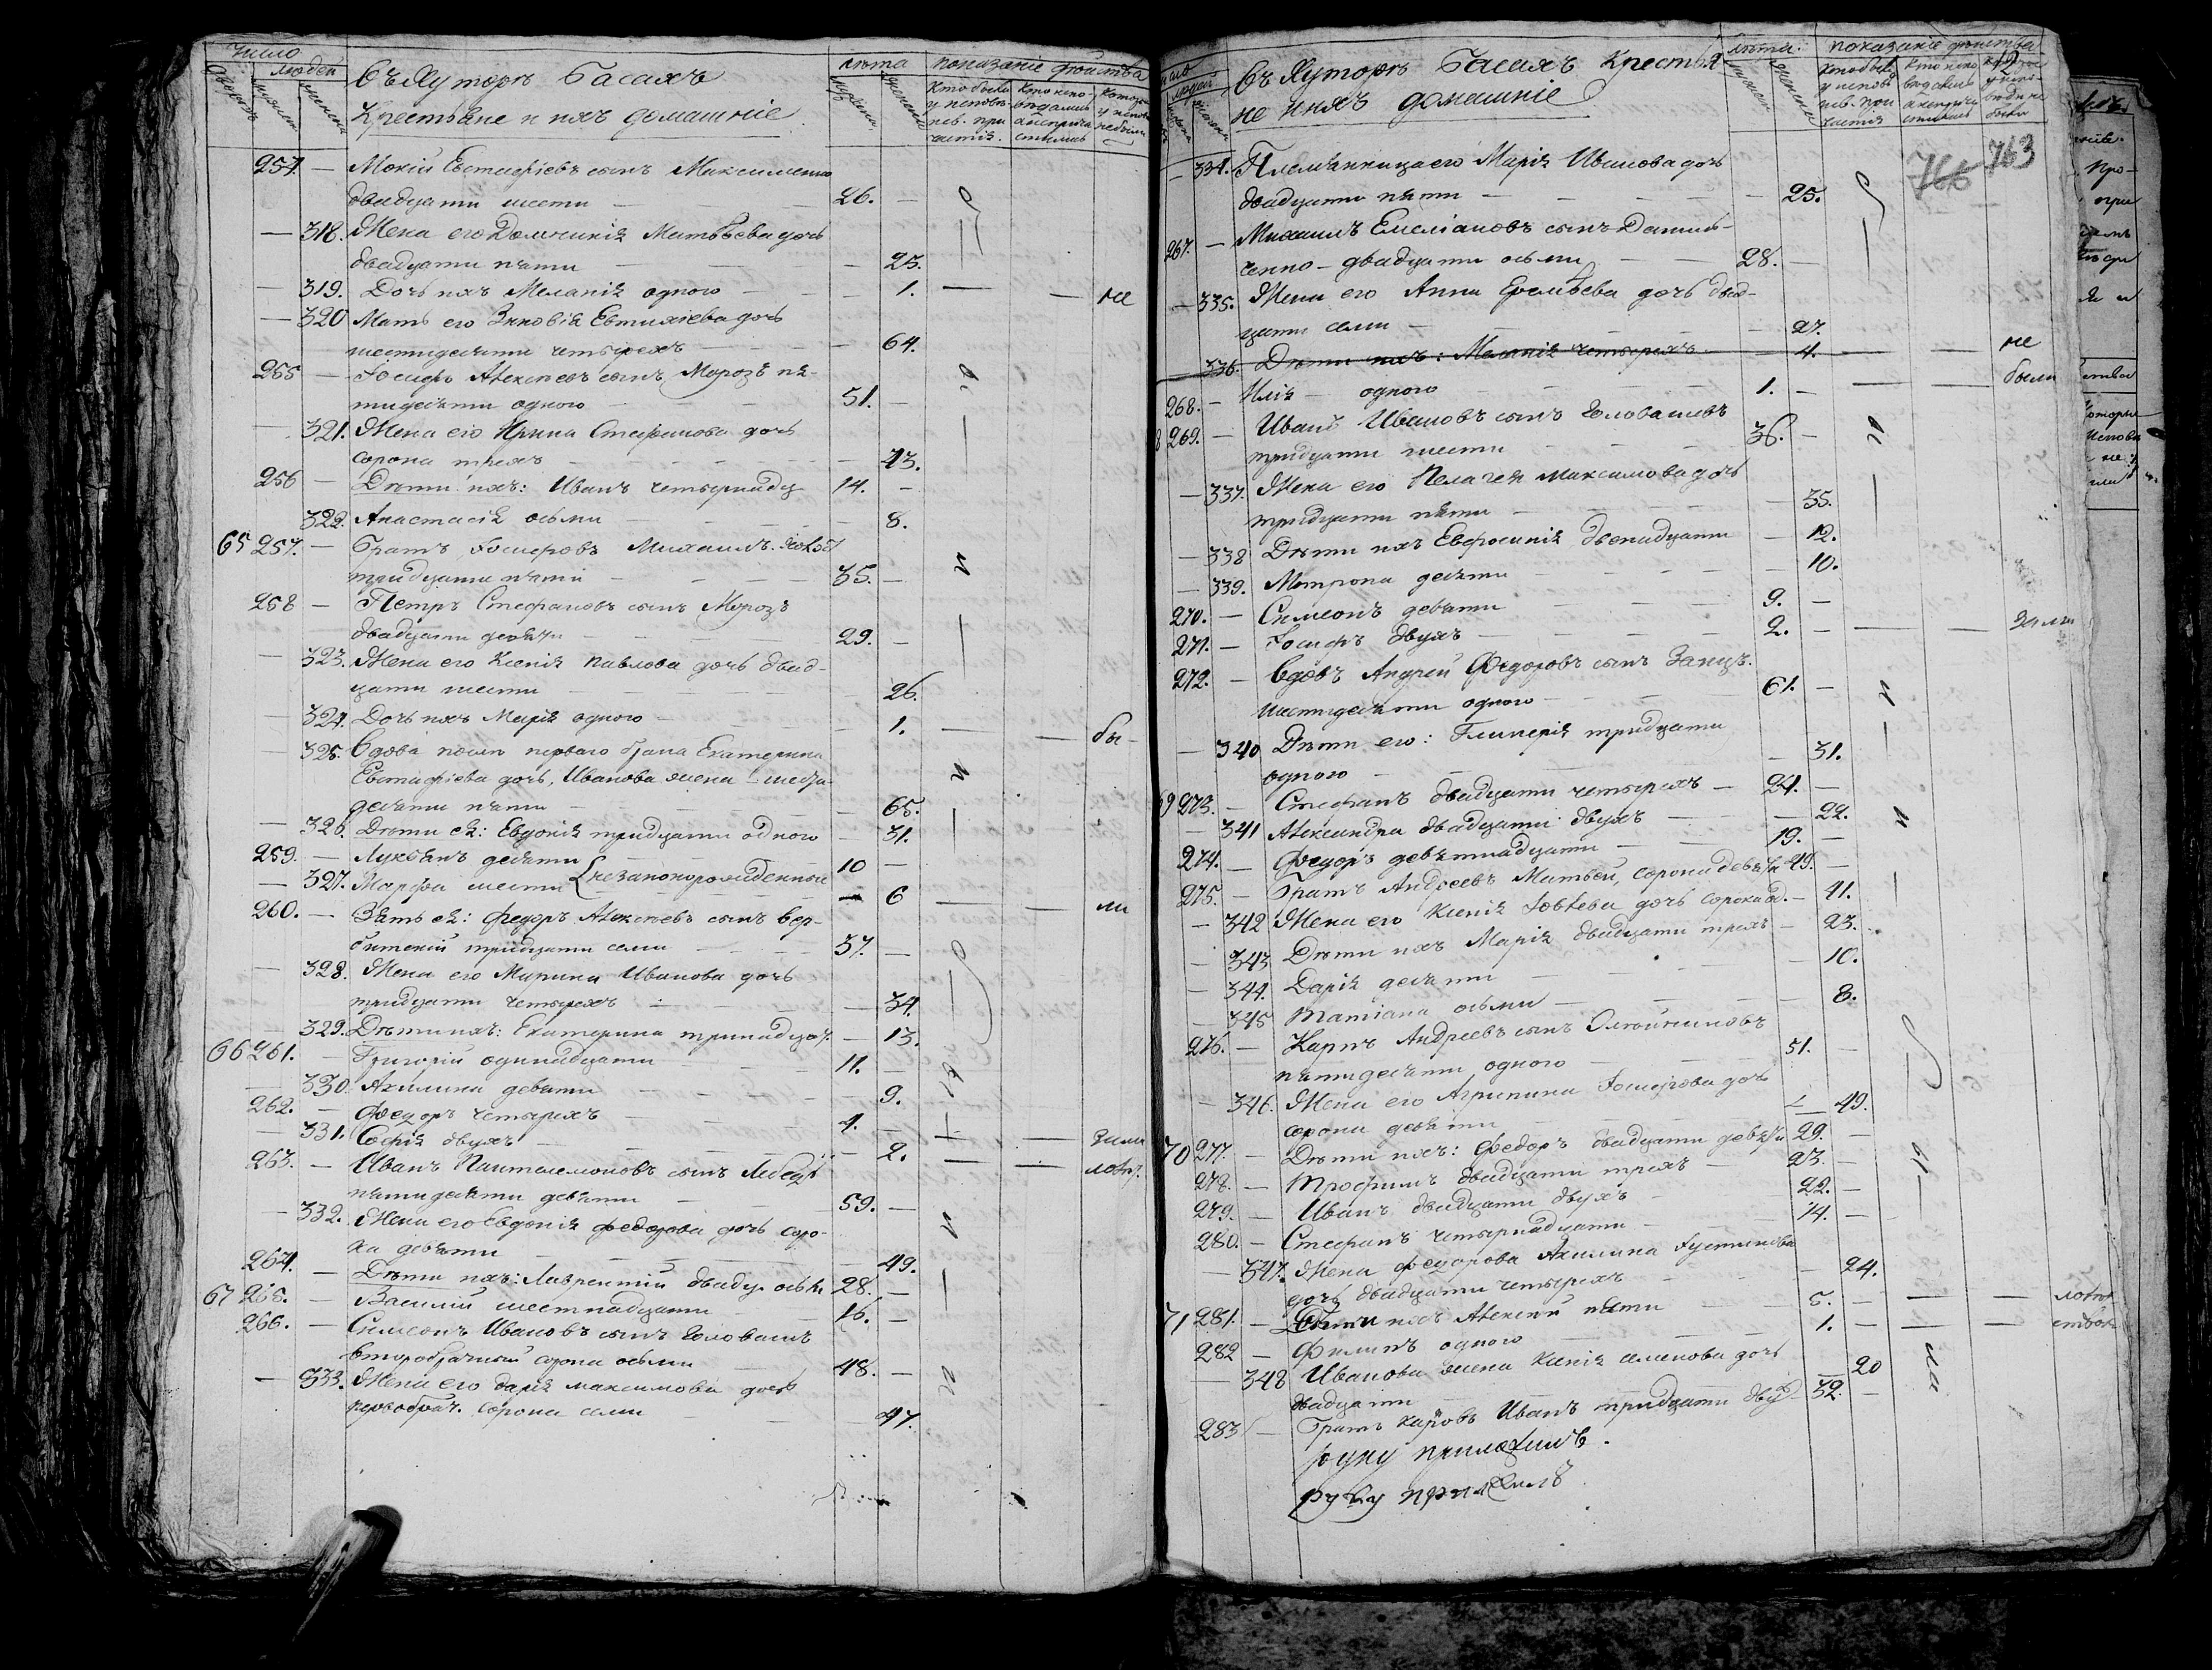 Число
людей
лѣта
показаніе дѣйства
въ Хуторѣ Басахъ
Крестьяне и ихъ домашніе
254. — Мокій Евстафіевъ сынъ Максименко
двадцати шести — 26. —
— 318. Жена его Домникія Матвѣева дочь
двадцати пяти — 25.
— 319. Дочь ихъ Меланія одного — 1. — — не
— 320 Мать его Зиновія Евтихіева дочь
шестидесяти четырехъ — 64.
255 — Іосифъ Алексѣевъ сынъ Морозъ пя-
тидесяти одного 51. —
321. Жена его Ирина Стефанова дочь
сорока трехъ — 43.
256 — Дѣти ихъ: Иванъ четырнадц 14. —
322. Анастасія осьми — 8.
65 257. — Братъ Іосифовъ Михаилъ
тридцати пяти — 35. —
258 — Петръ Стефановъ сынъ Морозъ
двадцати девяти 29. —
— 323. Жена его Ксенія Павлова дочь двад-
цати шести — 26.
— 324. Дочь ихъ Марія одного — 1. — — бы-
— 325. Вдова после перваго брака Екатерина
Евстафіева дочь, Иванова жена шести-
десяти пяти — 65.
— 326. Дѣти ея: Евдокія тридцати одного — 31.
259. — Лукьянъ десяти 10 —
— 327. Марфа шести незаконорожденные — 6 — — ли
260. — Зять ея: Федоръ Алексѣевъ сынъ Вер-
битскій тридцати семи 37. —
— 328. Жена его Марина Иванова дочь
тридцати четырехъ — 34.
— 329. Дѣти ихъ: Екатерина тринадцат. — 13.
66 261. — Григорій одинадцати 11. —
— 330. Акилина девяти — 9.
262. — Федоръ четырехъ 4. —
— 331. Софія двухъ — 2. — —
263. — Иванъ Пантелемоновъ сынъ
пятидесяти девяти 59. —
— 332. Жена его Евдокія Федорова дочь соро-
ка девяти — 49.
264. — Дѣти ихъ: Лаврентій двадц. осьми 28. —
67 265. — Василій шестнадцати 16. —
266. — Симеонъ Ивановъ сынъ Головашъ
второбрачный сорока осьми 48. —
— 333. Жена его Дарія Максимова дочь
первобрач. сорока семи 47.
лѣта
показаніе дѣйства
въ Хуторѣ Басахъ Крестья
не и ихъ домашніе
766 763
— 334. Племянница его Марія Иванова дочь
двадцати пяти — 25.
267. — Михаилъ Емеліановъ сынъ Данил-
ченко — двадцати осьми 28. —
— 335. Жена его Анна Еремѣева дочь двад-
цати семи — 27.
336. Дѣти ихъ: Меланія четырехъ — 4. — — не
268. — Илія — одного 1. — — — были
269. — Иванъ Ивановъ сынъ Головашевъ
тридцати шести 36. —
— 337. Жена его Пелагея Максимова дочь
тридцати пяти — 35.
— 338 Дѣти ихъ Евфросинія двенадцати — 12.
— 339. Матрона десяти — 10.
270. — Симеонъ девяти 9. —
271. — Іосифъ двухъ 2. — — —
272. — Вдовъ Андрей Федоровъ сынъ Заецъ
шестидесяти одного 61. —
— 340 Дѣти его: Гликерія тридцати
одного — 31.
69 273. — Стефанъ двадцати четырехъ — 24. —
— 341 Александра двадцати двухъ — 22.
274. — Федоръ девятнадцати 19. —
275. — Братъ Андреевъ Матвей, сорока девяти 49. —
— 342 Жена его Ксенія Іовлева дочь сорока од. — 41.
— 343 Дѣти ихъ Марія двадцати трехъ — 23.
— 344. Дарія десяти — 10.
— 345 Татіана осьми — 8.
276. — Карпъ Андреевъ сынъ Олейниковъ
пятидесяти одного 51. —
— 346. Жена его Агрипина Іосифова дочь
сорока девяти — 49.
70 277. — Дѣти ихъ: Федоръ двадцати девяти 29. —
278. — Трофимъ двадцати трехъ 23. —
279. — Иванъ двадцати двухъ 22. —
280. — Стефанъ четырнадцати 14. —
— 347. Жена Федорова Акилина Іустинова
дочь двадцати четырехъ — 24.
71 281. — Дѣти ихъ Алексей пяти 5. — — —
282 — Филипъ одного 1. — — —
— 348 Иванова жена Ксенія Семенова дочь
двадцати — 20
283 — Братъ Карповъ Иванъ тридцати двух 32. —
руку приложилъ.
руку приложилъ